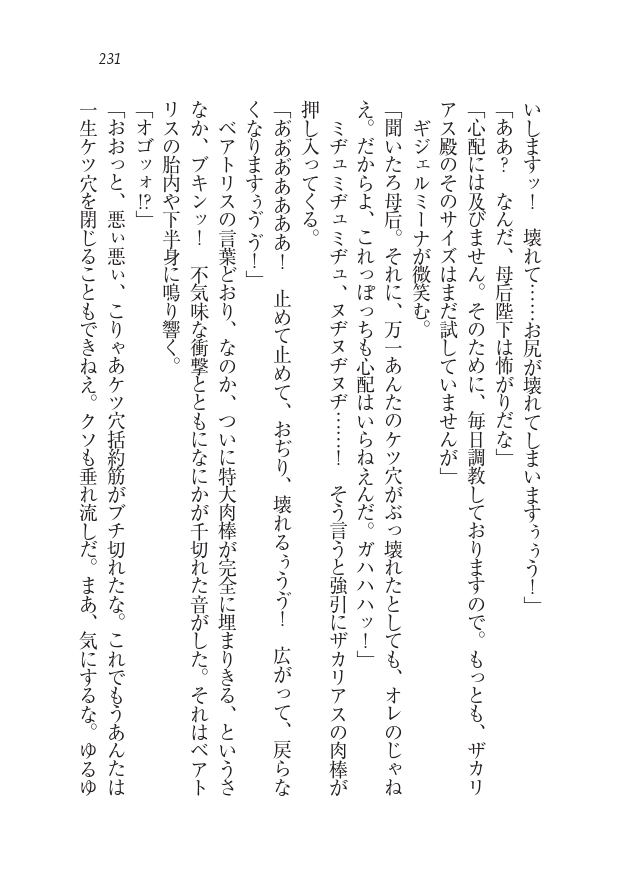 231
いしますッ！　壊れて……お尻が壊れてしまいますぅぅう！」
「ああ？　なんだ、母后陛下は怖がりだな」
「心配には及びません。そのために、毎日調教しておりますので。もっとも、ザカリ
アス殿のそのサイズはまだ試していませんが」
　ギジェルミーナが微笑む。
「聞いたろ母后。それに、万一あんたのケツ穴がぶっ壊れたとしても、オレのじゃね
え。だからよ、これっぽっちも心配はいらねえんだ。ガハハハッ！」
　ミヂュミヂュミヂュ、ヌヂヌヂヌヂ……！　そう言うと強引にザカリアスの肉棒が
押し入ってくる。
「あ゛あ゛あ゛ああああ！　止めて止めて、おぢり、壊れるぅうゔ！　広がって、戻らな
くなりますぅゔゔ！」
　ベアトリスの言葉どおり、なのか、ついに特大肉棒が完全に埋まりきる、というさ
なか、ブキンッ！　不気味な衝撃とともになにかが千切れた音がした。それはベアト
リスの胎内や下半身に鳴り響く。
「オゴッォ!?」
「おおっと、悪ぃ悪ぃ、こりゃあケツ穴括約筋がブチ切れたな。これでもうあんたは
一生ケツ穴を閉じることもできねえ。クソも垂れ流しだ。まあ、気にするな。ゆるゆ